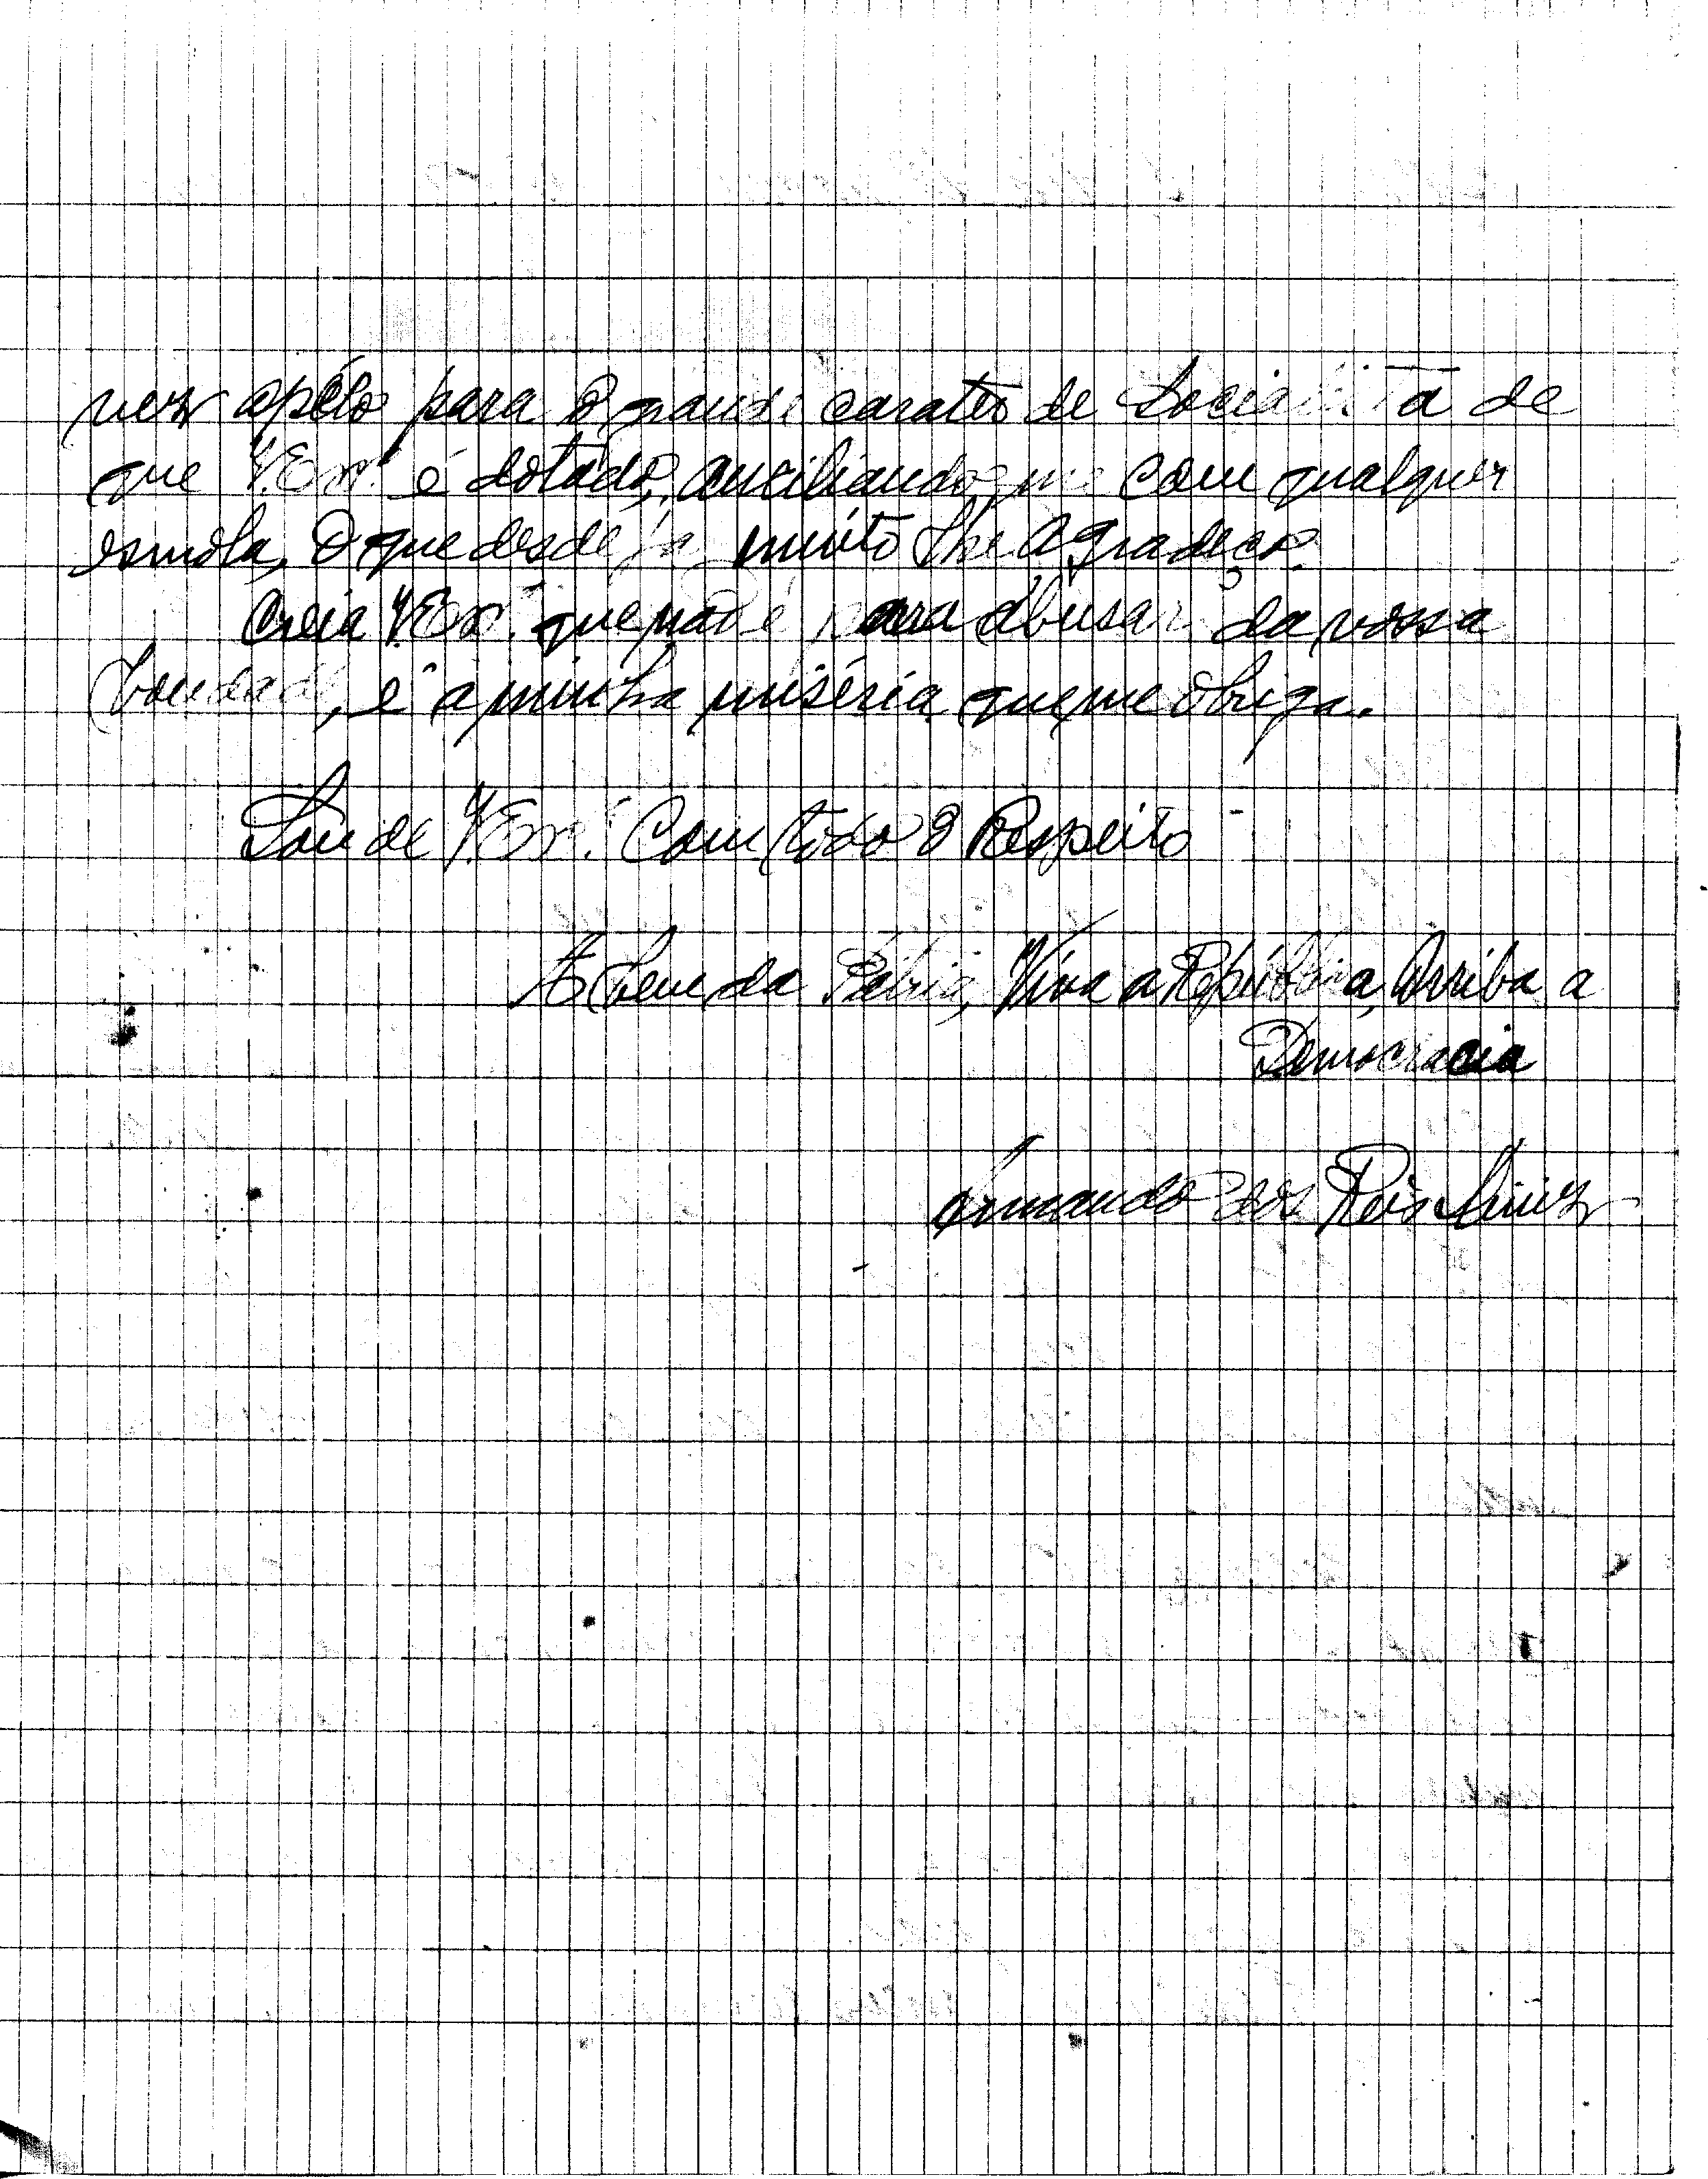 vez apélo para o grande carater de Socialista de
que V. Exª. é dotado, auxiliando-me com qualquer
esmola, o que desde já muito lhe agradeço.
Creia V. Exª. que não é para abusar da vossa
bondade, é a minha miséria que me obriga.
Saude V. Exª. Com todo o Respeito
A bem da Pátria, Viva a República, Arriba a
Democracia
Armando dos Reis